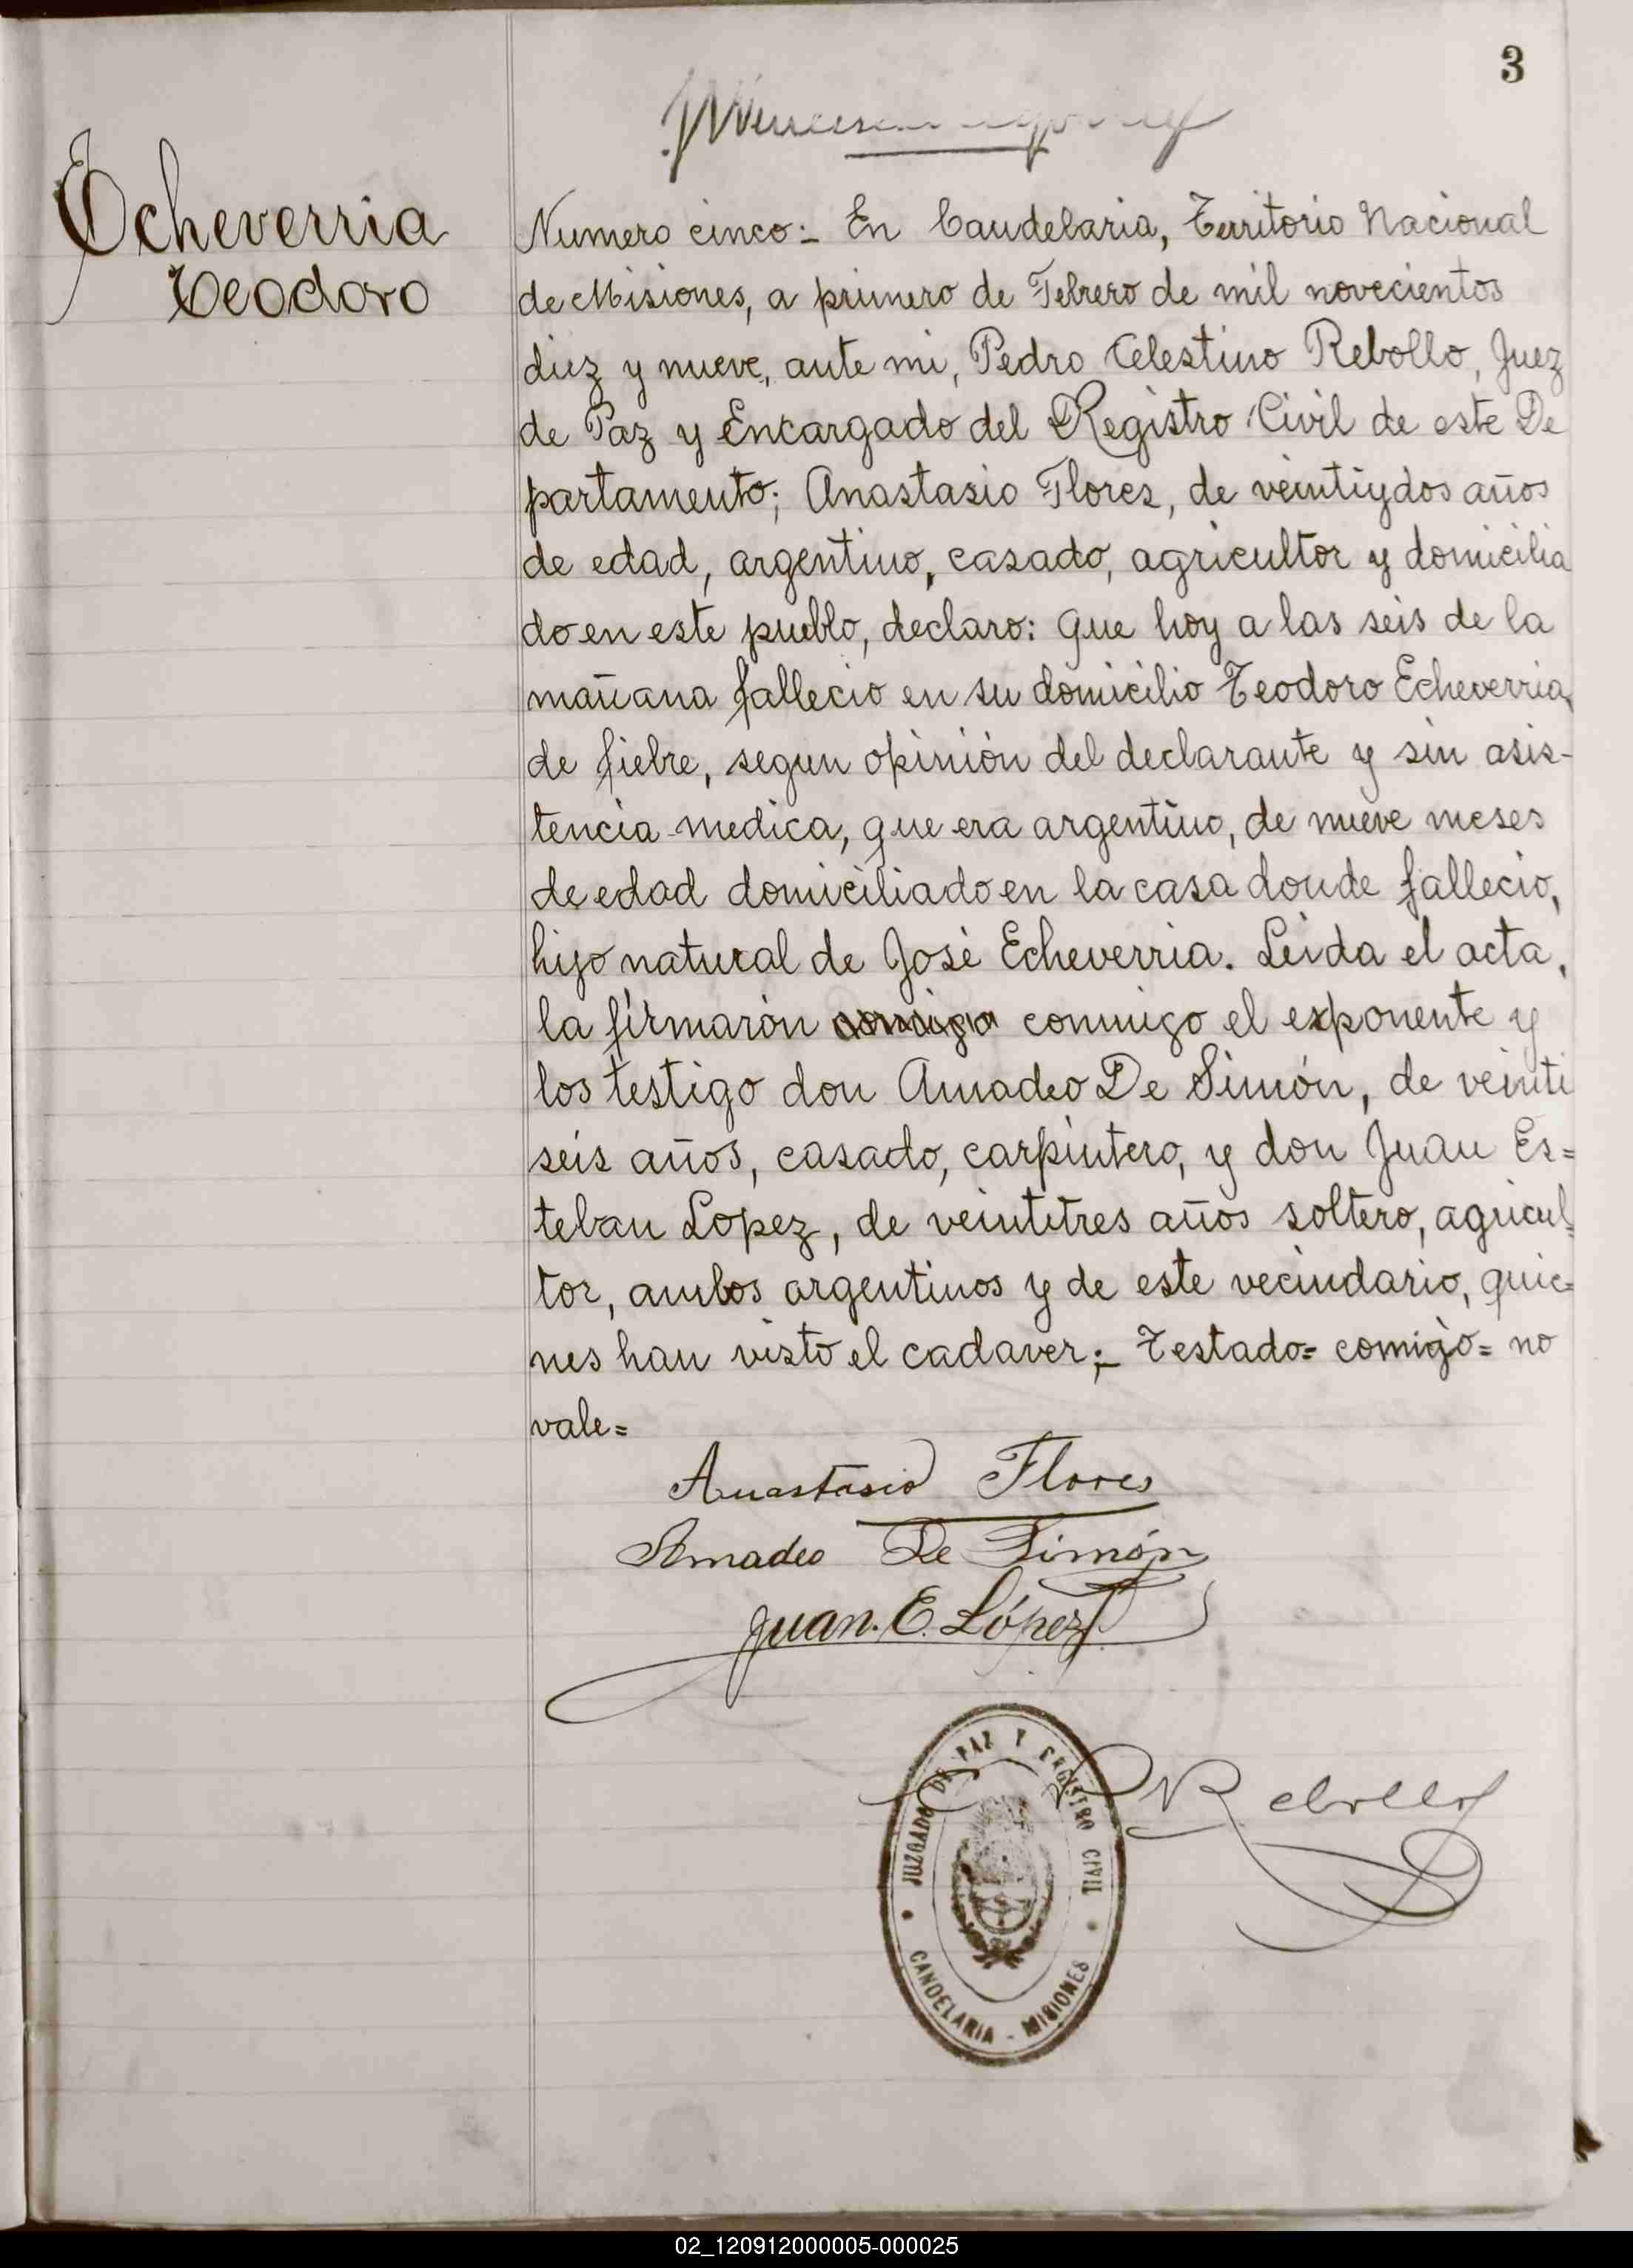 3
Echeverria
Teodoro
Numero cinco:- En Candelaria, Territorio Nacional
de Misiones, a primero de Febrero de mil novecientos
diez y nueve, ante mi, Pedro Celestino Rebollo, Juez
de Paz y Encargado del Registro Civil de este De
partamento; Anastasio Flores, de veintiydos años
de edad, argentino, casado, agricultor y domicilia
do en este pueblo, declaro: que hoy a las seis de la
mañana fallecio en su domicilio Teodoro Echeverria,
de fiebre, segun opinión del declarante y sin asis-
tencia medica, que era argentino, de nueve meses
de edad domiciliado en la casa donde fallecio,
hijo natural de José Echeverria. Leida el acta,
la firmarón comigo conmigo el exponente y
los testigo don Amadeo De Simón, de veinti
seis años, casado, carpintero, y don Juan Es=
teban Lopez, de veintitres años soltero, agricul=
tor, ambos argentinos y de este vecindario, quie=
nes han visto el cadaver;- Testado= comigo= no
vale=
Anastasio Flores
Amadeo De Simón
Juan. E. López
Rebollo
JUZGADO DE PAZ Y REGISTRO CIVIL
CANDELARIA - MISIONES
02_120912000005-000025